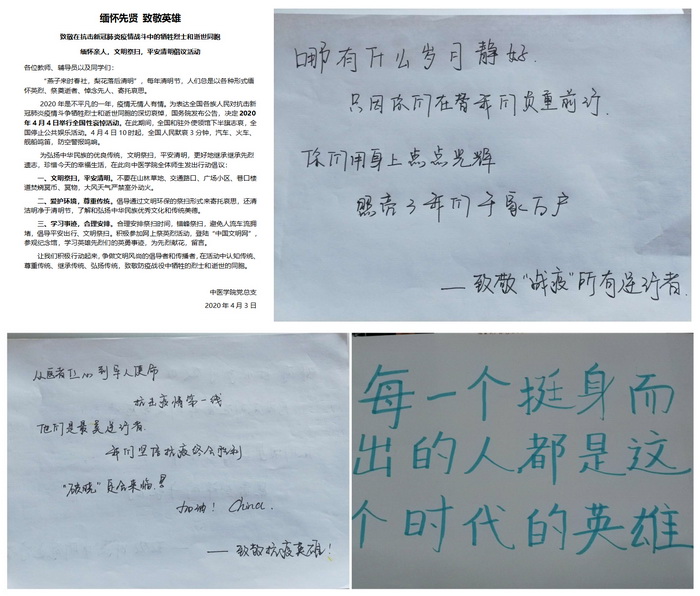 缅怀先贤 致敬英雄
致敬在抗击新冠肺炎疫情战斗中的牺牲烈士和逝世同胞
缅怀亲人，文明祭扫，平安清明倡议活动
各位教师、辅导员以及同学们：
“燕子来时春社，梨花落后清明”，每年清明节，人们总是以各种形式缅
怀英烈，祭奠逝者、悼念先人、寄托哀思。
2020 年是不平凡的一年，疫情无情人有情。为表达全国各族人民对抗击新
冠肺炎疫情斗争牺牲烈士和逝世同胞的深切哀悼，国务院发布公告，决定 2020
年 4 月 4 日举行全国性哀悼活动。在此期间，全国和驻外使领馆下半旗志哀，全
国停止公共娱乐活动。4 月 4 日 10 时起，全国人民默哀 3 分钟，汽车、火车、
舰船鸣笛，防空警报鸣响。
为弘扬中华民族的优良传统，文明祭扫，平安清明，更好地继承继承先烈
遗志，珍惜今天的幸福生活，在此向中医学院全体师生发出行动倡议：
一、文明祭扫，平安清明。不要在山林草地、交通路口、广场小区、巷口楼
道焚烧冥币、冥物，大风天气严禁室外动火。
二、爱护环境，尊重传统。倡导通过文明环保的祭扫形式来寄托哀思，还清
洁明净于清明节，了解和弘扬中华民族优秀文化和传统美德。
三、学习事迹，合理安排。合理安排祭扫时间，错峰祭扫，避免人流车流拥
堵，倡导平安出行、文明祭扫。积极参加网上祭英烈活动，登陆“中国文明网”，
参观纪念馆，学习英雄先烈们的英勇事迹，为先烈献花、留言。
让我们积极行动起来，争做文明风尚的倡导者和传播者，在活动中认知传统、
尊重传统、继承传统、弘扬传统，致敬防疫战役中牺牲的烈士和逝世的同胞。
中医学院党总支
2020 年 4 月 3 日
哪有什么岁月静好.
只因你们在替我们负重前行.
你们用身上点点光辉
照亮了我们千家万户
——致敬“战疫”所有逆行者.
从医者仁心到军人使命
抗击疫情第一线
他们是最美逆行者.
我们坚信抗疫终会胜利
“破晓”总会来临!
加油! China.
——致敬抗疫英雄!
每一个挺身而
出的人都是这
个时代的英雄